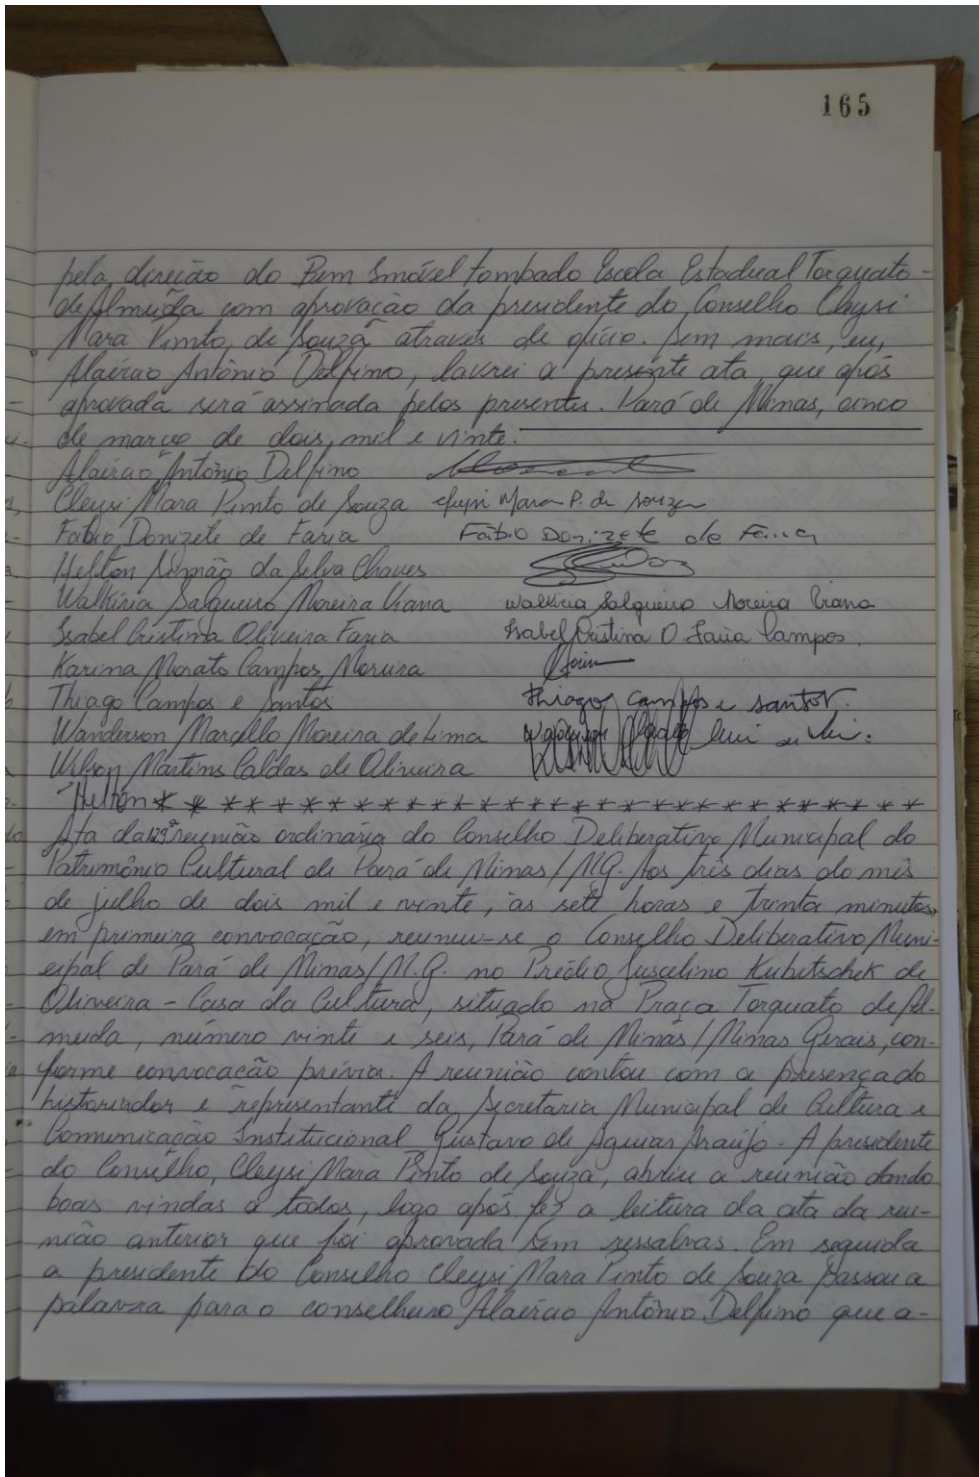 165
pela direção do Bem Imóvel tombado Escola Estadual Torquato
de Almeida com aprovação da presidente do Conselho Cleysi
Mara Pinto de Souza através de ofício. Sem mais, eu,
Alaércio Antônio Delfino, lavrei a presente ata, que após
aprovada será assinada pelos presentes. Pará de Minas, cinco
de março de dois mil e vinte.
Alaércio Antônio Delfino
Cleysi Mara Pinto de Souza Cleysi Mara P. de Souza
Fabio Donizete de Faria Fábio Donizete de Faria
Helton Simão da Silva Chaves
Walkiria Salgueiro Moreira Viana Walkiria Salgueiro Moreira Viana
Isabel Cristina Oliveira Faria Isabel Cristina O. Faria Campos.
Karina Morato Campos Moreira
Thiago Campos e Santos Thiago Campos e Santos.
Wanderson Marcello Moreira de Lima
Wilson Martins Caldas de Oliveira
Helton * * * * * * * * * * * * * * * * * * * * * * * * * * * * *
Ata da 129ª reunião ordinária do Conselho Deliberativo Municipal do
Patrimônio Cultural de Pará de Minas/MG. Aos três dias do mês
de julho de dois mil e vinte, às sete horas e trinta minutos,
em primeira convocação, reuniu-se o Conselho Deliberativo Muni-
cipal de Pará de Minas/M.G. no Prédio Juscelino Kubitschek de
Oliveira - Casa da Cultura, situado na Praça Torquato de Al-
meida, número vinte e seis, Pará de Minas/Minas Gerais, con-
forme convocação prévia. A reunião contou com a presença do
historiador e representante da Secretaria Municipal de Cultura e
Comunicação Institucional Gustavo de Aguiar Araújo. A presidente
do Conselho, Cleysi Mara Pinto de Souza, abriu a reunião dando
boas vindas a todos, logo após fez a leitura da ata da reu-
nião anterior que foi aprovada sem ressalvas. Em seguida
a presidente do Conselho Cleysi Mara Pinto de Souza passou a
palavra para o conselheiro Alaércio Antônio Delfino que a-